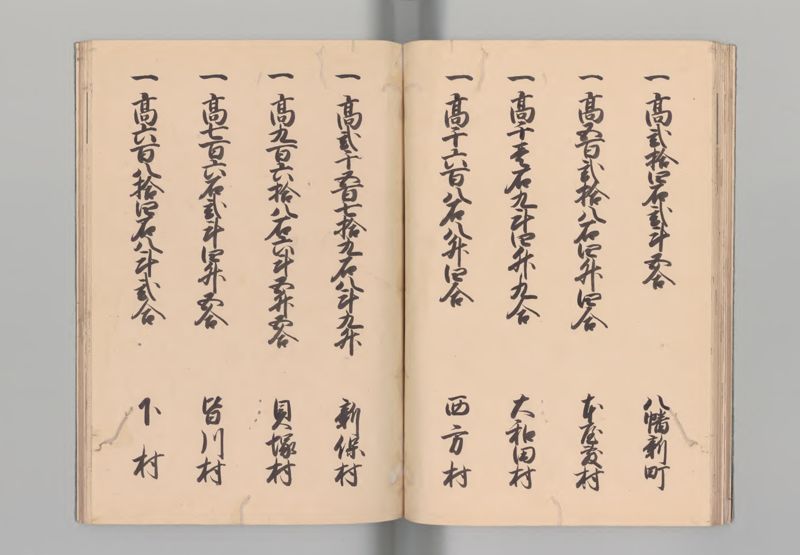 一 高弐拾四石弐斗五合 八幡新町
一 高五百弐拾八石四升四合 本屋敷村
一 高千壱石九斗四升九合 大和田村
一 高千六百八石八升四合 西方村
一 高弐千五百七拾九石八斗九升 新保村
一 高九百六拾八石六斗五升五合 貝塚村
一 高七百六石弐斗四升五合 皆川村
一 高六百八拾四石八斗弐合 下村